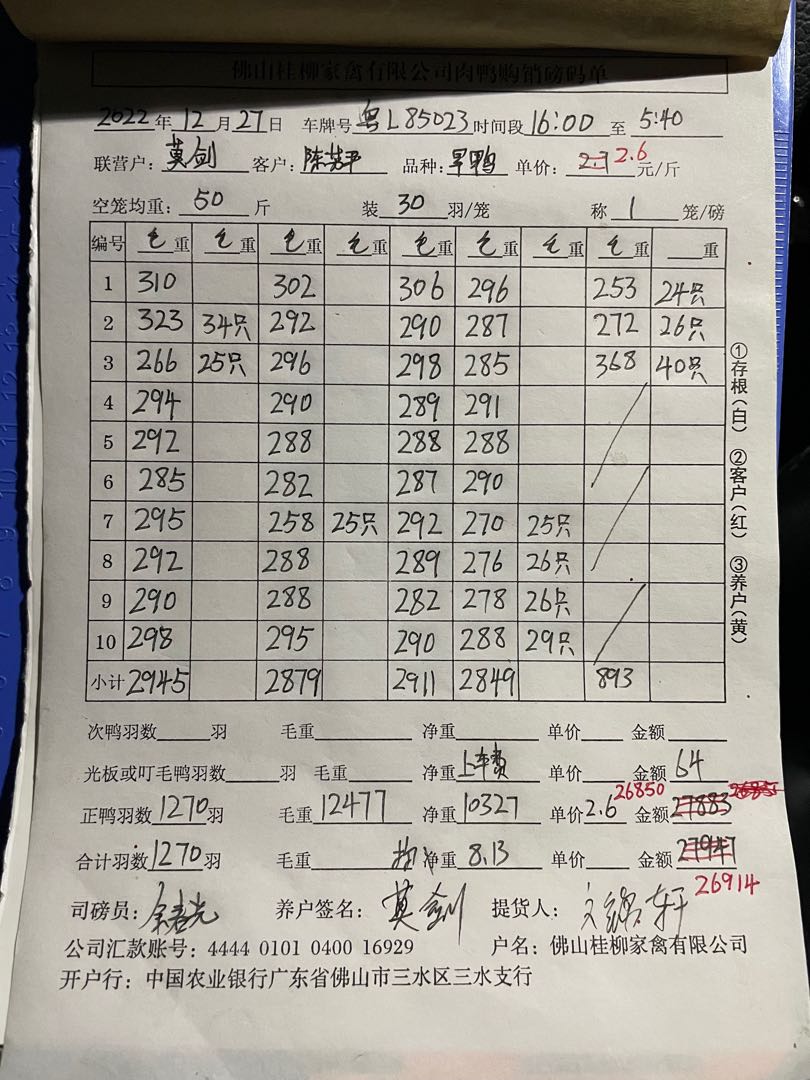 佛山桂柳家禽有限公司肉鸭购销磅码单
2022年12月27日 车牌号粤L85023时间段16:00至5:40
联营户:莫剑 客户: 品种:旱鸭 单价:2.7 2.6元/斤
空笼均重:50斤 装30羽/笼 称1笼/磅
编号 毛重 毛重 毛重 毛重 毛重 毛重 毛重 毛重 重
1 310 302 306 296 253 24只
2 323 34只 292 290 287 272 26只
3 266 25只 296 298 285 368 40只
4 294 290 289 291
5 292 288 288 288
6 285 282 287 290
7 295 258 25只 292 270 25只
8 292 288 289 276 26只
9 290 288 282 278 26只
10 298 295 290 288 29只
小计 2945 2879 2911 2849 893
次鸭羽数 羽 毛重 净重 单价 金额
光板或叮毛鸭羽数 羽 毛重 净重上车费 单价 金额64
26850
正鸭羽数1270羽 毛重12477 净重10327 单价2.6 金额27883
合计羽数1270羽 毛重 均净重8.13 单价 金额27947
26914
司磅员: 养户签名:莫剑 提货人:
公司汇款账号:4444 0101 0400 16929 户名:佛山桂柳家禽有限公司
开户行:中国农业银行广东省佛山市三水区三水支行
①存根(白) ②客户(红) ③养户(黄)